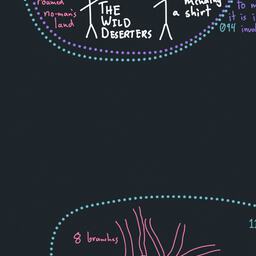 roamed
no-man's
land
THE
WILD
DESERTERS
mending
a shirt
to m
it is i
094 invol
8 branches
11